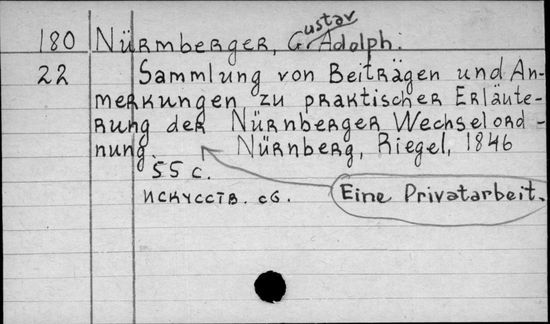 180 Nürmberger, Gustav Adolph.
22 Sammlung von Beiträgen und An-
merkungen zu praktischer Erläute-
rung der Nürnberger Wechselord-
nung. Nürnberg, Riegel, 1846
55 c.
искусств. сб.
Eine Privatarbeit.